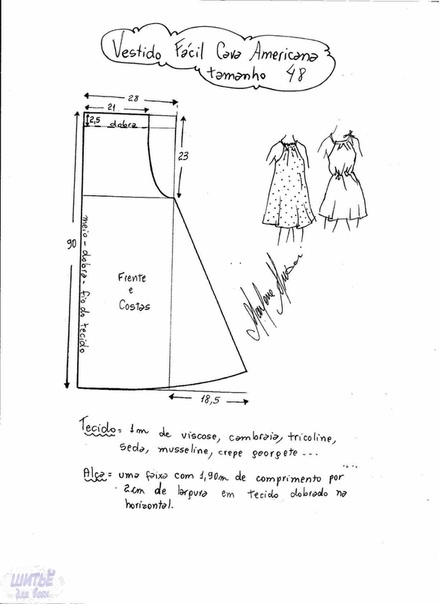 Vestido Fácil Cava Americana
tamanho 48
28
21
2,5
dobra
23
90
meio - dobra - fio do tecido
Frente
e
Costas
18,5
Tecido = 1m de viscose, cambraia, tricoline,
seda, musseline, crepe georgete ...
Alça = uma faixa com 1,90m de comprimento por
2cm de largura em tecido dobrado na
horizontal.
ШИТЬЁ
для всех